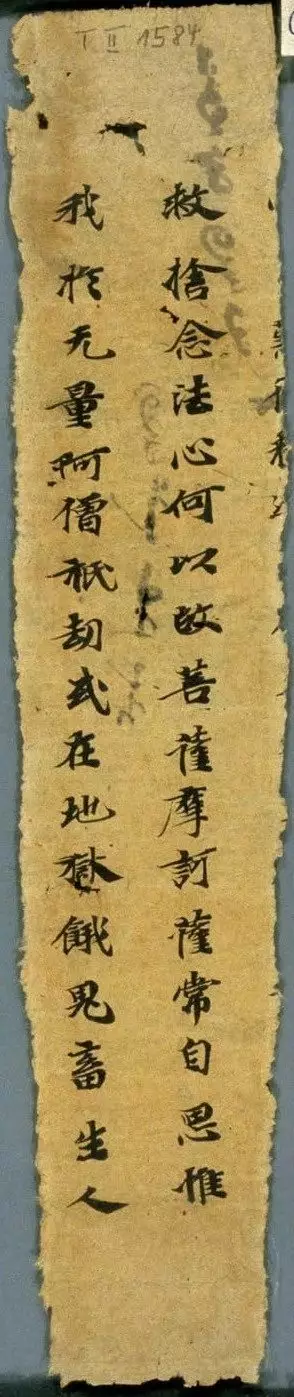 T II 1584
救捨念法心何以故菩薩摩訶薩常自思惟
我於无量阿僧祇劫或在地獄餓鬼畜生人